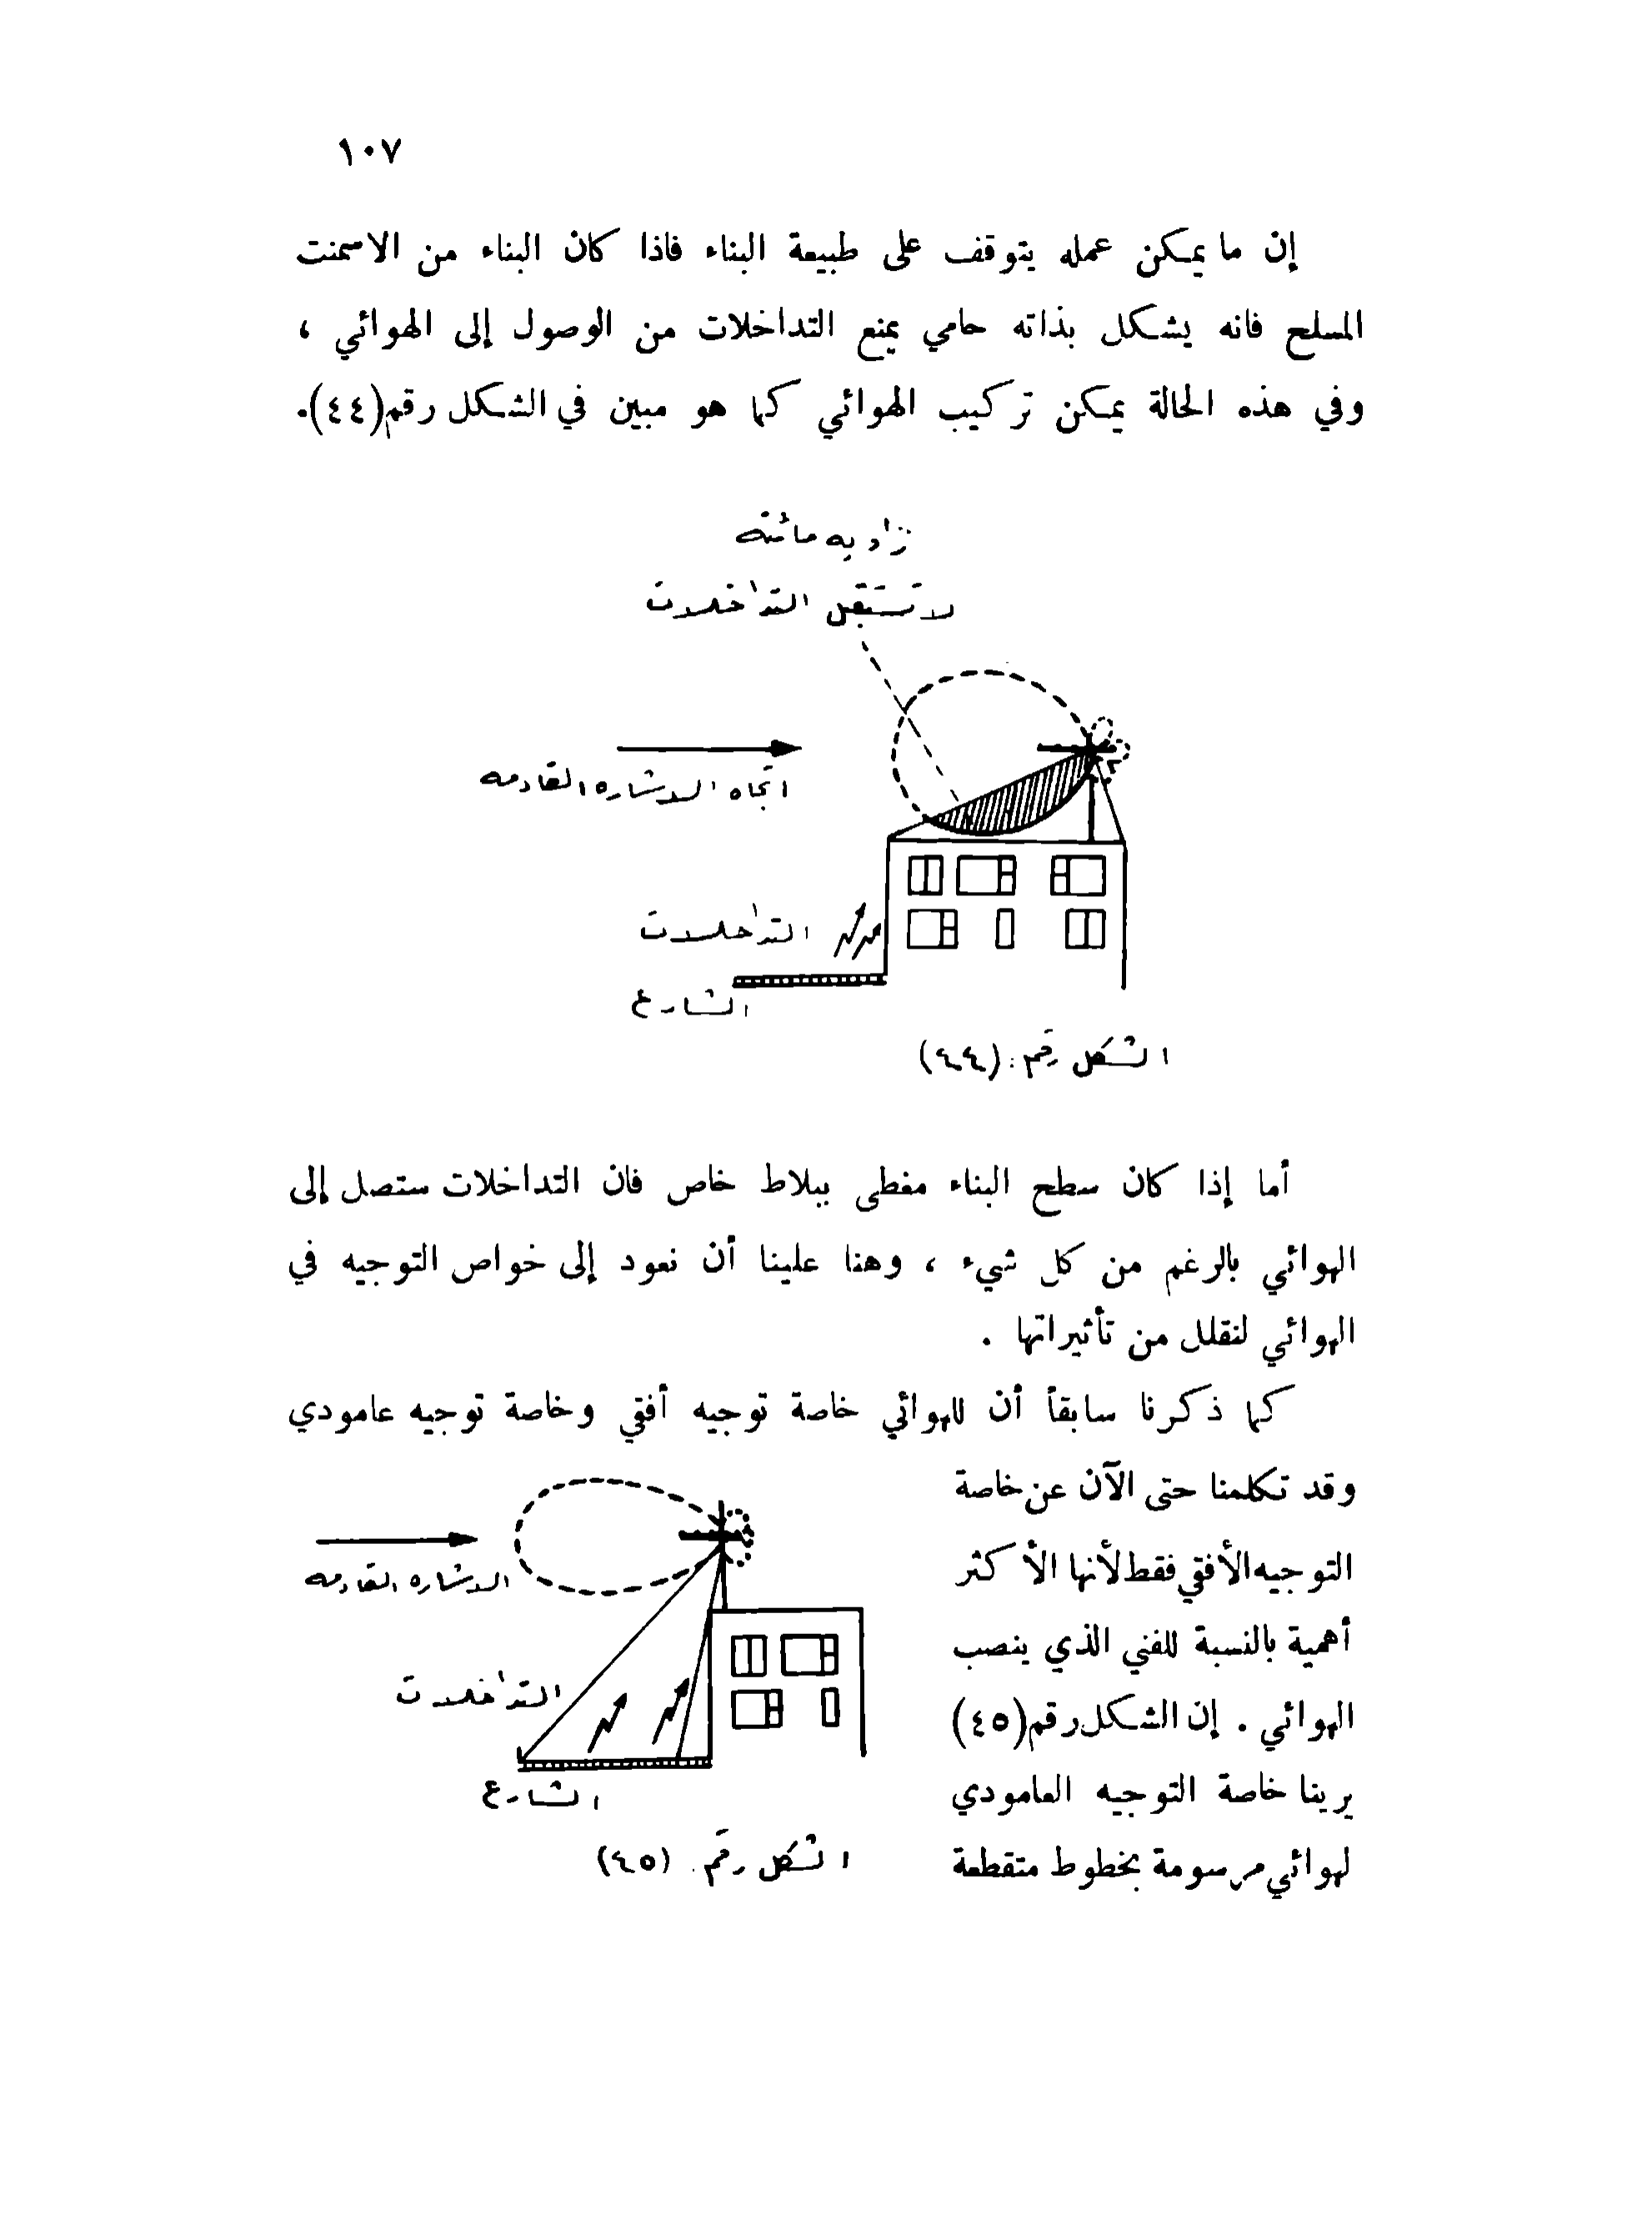 ١٠٧
إن ما يمكن عمله يتوقف على طبيعة البناء فاذا كان البناء من الاسمنت
المسلح فانه يشكل بذاته حامي يمنع التداخلات من الوصول إلى الهوائي ،
وفي هذه الحالة يمكن تركيب الهوائي كما هو مبين في الشكل رقم (٤٤).
زاويه مائته
لا تستقبل التداخلات
اتجاه الاشاره القادمه
التداخلات
الشارع
الشكل رقم : (٤٤)
أما إذا كان سطح البناء مغطى ببلاط خاص فان التداخلات ستصل إلى
الهوائي بالرغم من كل شيء ، وهنا علينا أن نعود إلى خواص التوجيه في
الهوائي لنقلل من تأثيراتها .
كما ذكرنا سابقاً أن للهوائي خاصة توجيه أفقي وخاصة توجيه عامودي
وقد تكلمنا حتى الآن عن خاصة
التوجيه الأفقي فقط لأنها الأكثر
أهمية بالنسبة للفني الذي ينصب
الهوائي . إن الشكل رقم (٤٥)
يرينا خاصة التوجيه العامودي
لهوائي مرسومة بخطوط متقطعة
الاشاره القادمه
التداخلات
الشارع
الشكل رقم . (٤٥)